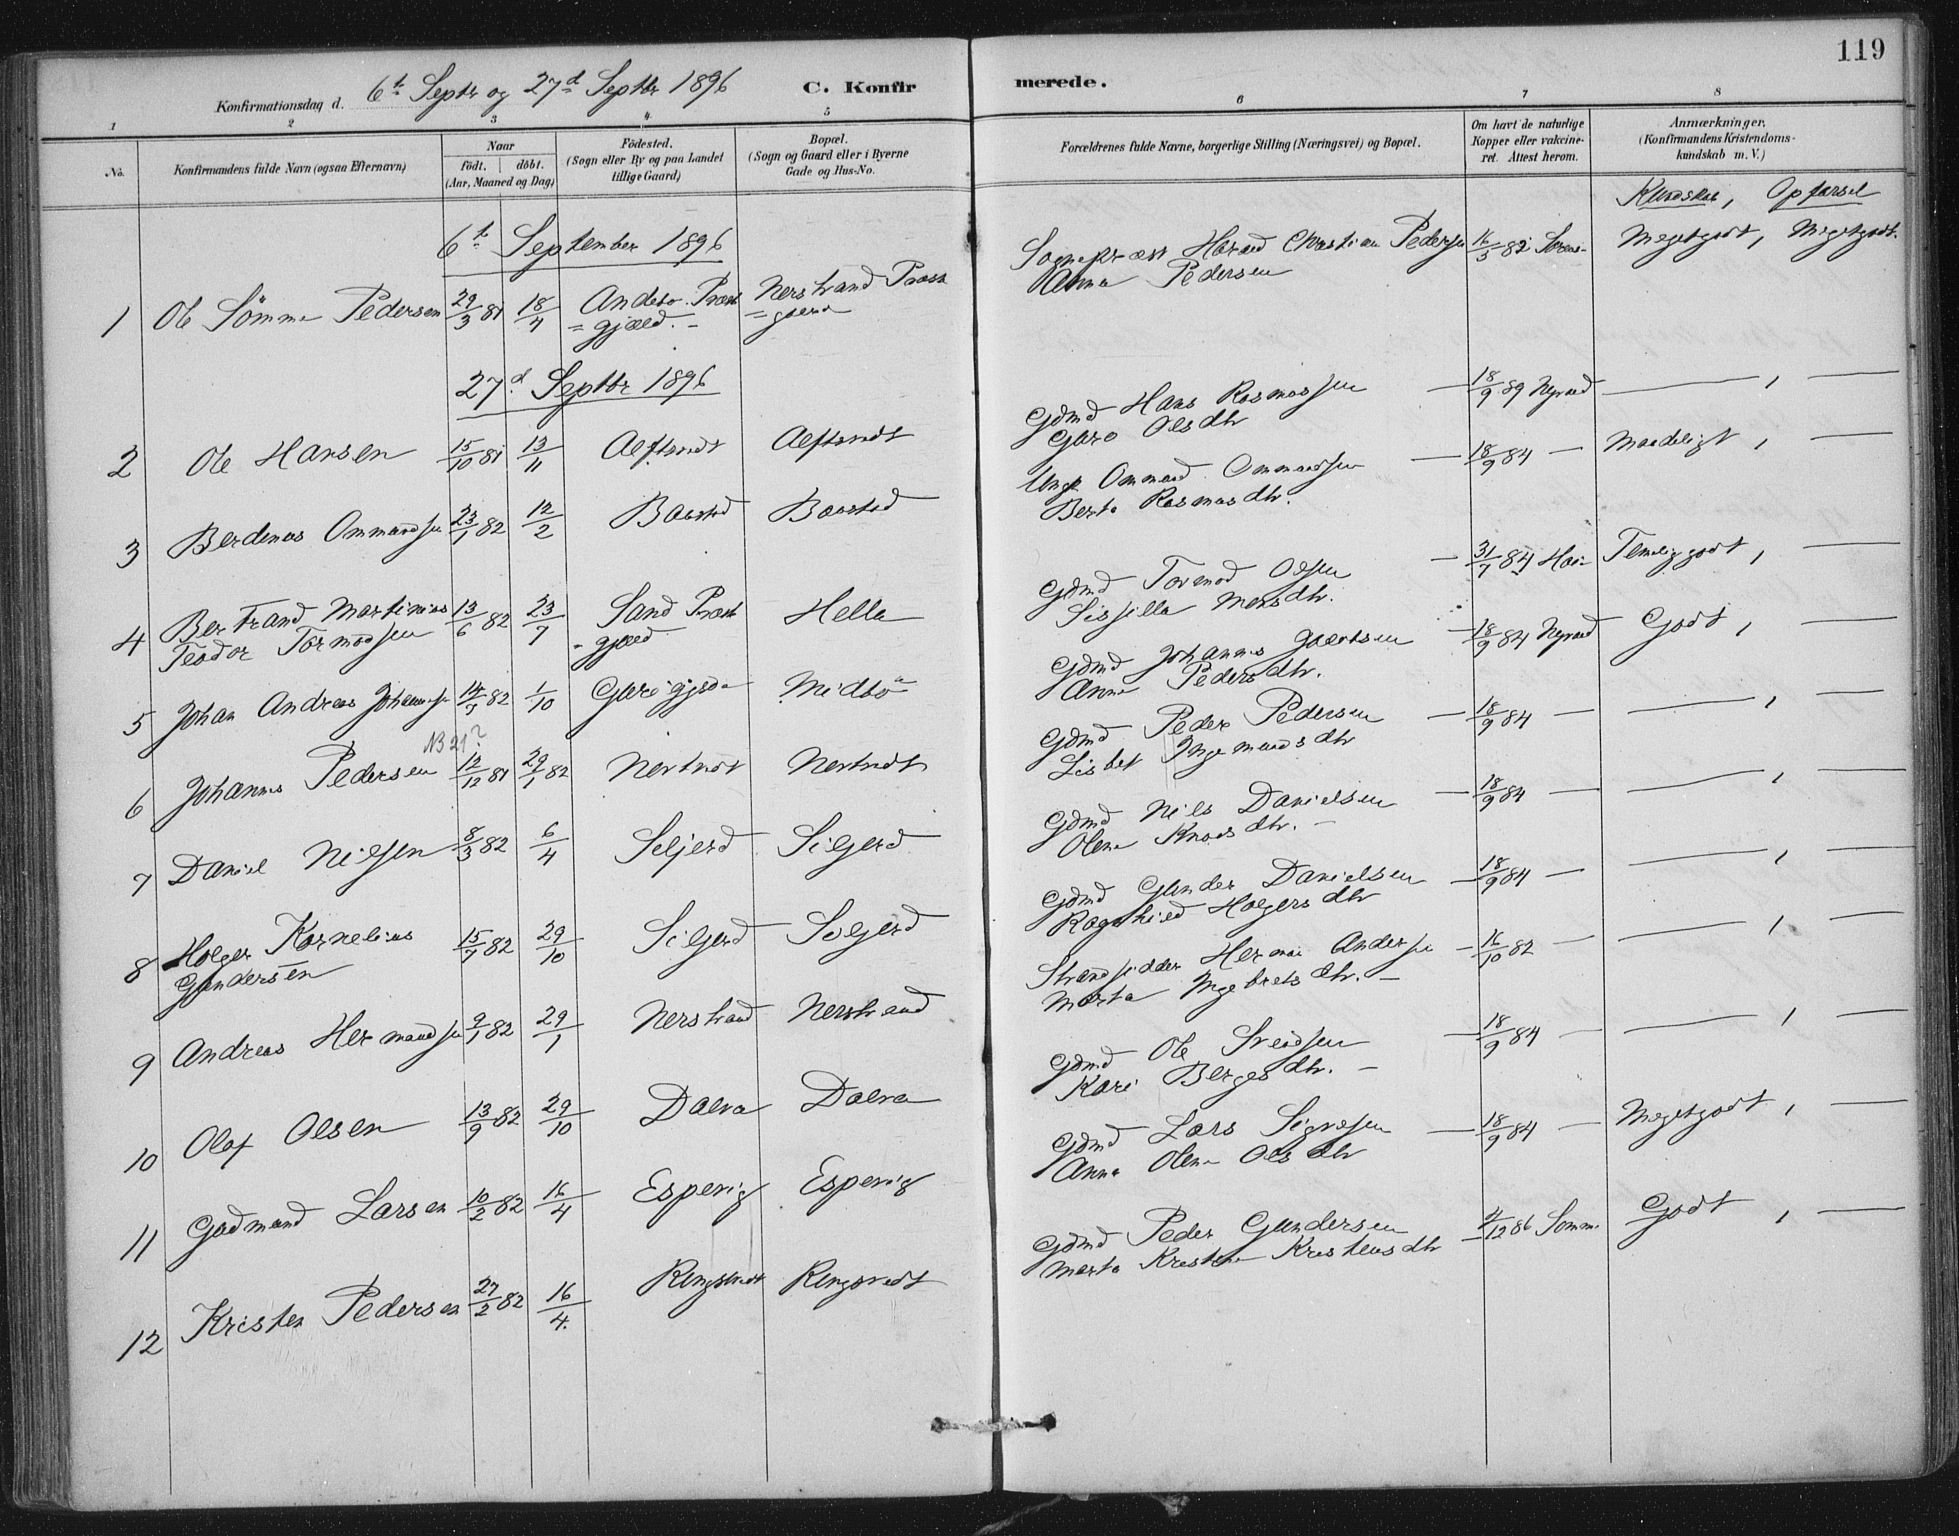 119
Konfirmationsdag d. 6te Septbr og 27d Septbr 1896 C. Konfir
merede.
1 2 3 4 5
6 7 8
No.
Konfirmandens fulde Navn (ogsaa Efternavn)
Naar
födt. döbt.
(Aar, Maaned og Dag)
Födested.
(Sogn eller By og paa Landet
tillige Gaard)
Bopæl.
(Sogn og Gaard eller i Byerne
Gade og Hus-No.
Forældrenes fulde Navne, borgerlige Stilling (Næringsvei) og Bopæl.
Om havt de naturlige
Kopper eller vakcine-
ret. Attest herom.
Anmærkninger.
(Konfirmandens Kristendoms-
kundskab m. V.)
Kundskab, Opførsel
6te September 1896
1 Ole Sömme Pedersen 29/3 81 18/4 Andebo Præst=gjæld. Nerstrand Præstegaard
Sogneprest Christian Pedersen 16/5 82 Meget godt, Meget godt.
Anna Pedersen
27d Septbr 1896
2 Ole Hansen 15/10 81 13/11
Gdmd Hans Rasmussen — 18/9 89 — , —
Guro Olsdtr
3 Berdinas Ommundsen 23/1 82 12/2 Baastad Baastad
Ommund Ommundsen — 18/9 84 — Maadeligt, —
Berta Rasmusdtr.
4 Bertrand Martinius 13/6 82 23/7 Sand Præst Hella
Teodor Tormodsen -gjæld
Gdmd Tormod Olsen — 31/7 84 Temelig godt, —
Sissilla Monsdtr.
5 Johan Andreas Johannesen 14/7 82 1/10 Midtbö
Gdmd Johannes — 18/9 84 Godt, —
Anna Pedersdtr.
NB 21?
6 Johannes Pedersen 12/12 81 29/1 82 Nertvedt Nertvedt
Gdmd Peder Pedersen — 18/9 84 — — , —
Lisbet Ingemunds dtr
7 Daniel Nilsen 8/3 82 6/4 Seljerd Siljerd
Gdmd Nils Danielsen — 18/9 84 — — , —
Olena Knudsdtr. —
8 Holger Kornelius 15/7 82 29/10 Siljerd Seljerd
Gundersen
Gdmd Gunder Danielsen — 18/9 84 — — , —
Ragnhild Holgers dtr
9 Andreas Hermandsen 9/1 82 29/1 Nerstrand Nerstrand
Strandsidder Herman Andersen — 16/10 82 — — , —
Marta Ingebrets dtr. —
10 Olaf Olsen 13/9 82 29/10 Dalva Dalva
Gdmd Ole Sveidsen — 18/9 84 — — , —
Kari Berges dtr. —
11 Gudmund Larsen 10/2 82 16/4 Espevig Espevig
Gdmd Lars Sigvesen — 18/9 84 — Meget godt, —
Anna Olena Ols dtr
12 Kristen Pedersen 27/2 82 16/4. Ringstvedt Ringstvedt
Gdmd Peder Gundersen — 2/12 86 Somm. Godt, —
Marta Kristine Kristensdtr